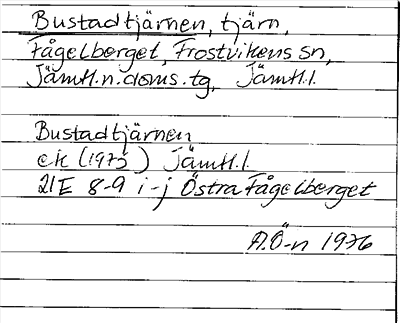 Bustadtjärnen, tjärn,
Fågelberget, Frostvikens sn,
Jämtl.n.doms.tg, Jämtl.l.
Bustadtjärnen
ek (1975) Jämtl.l.
21E 8-9 i-j Östra Fågelberget
A.Ö-n 1976